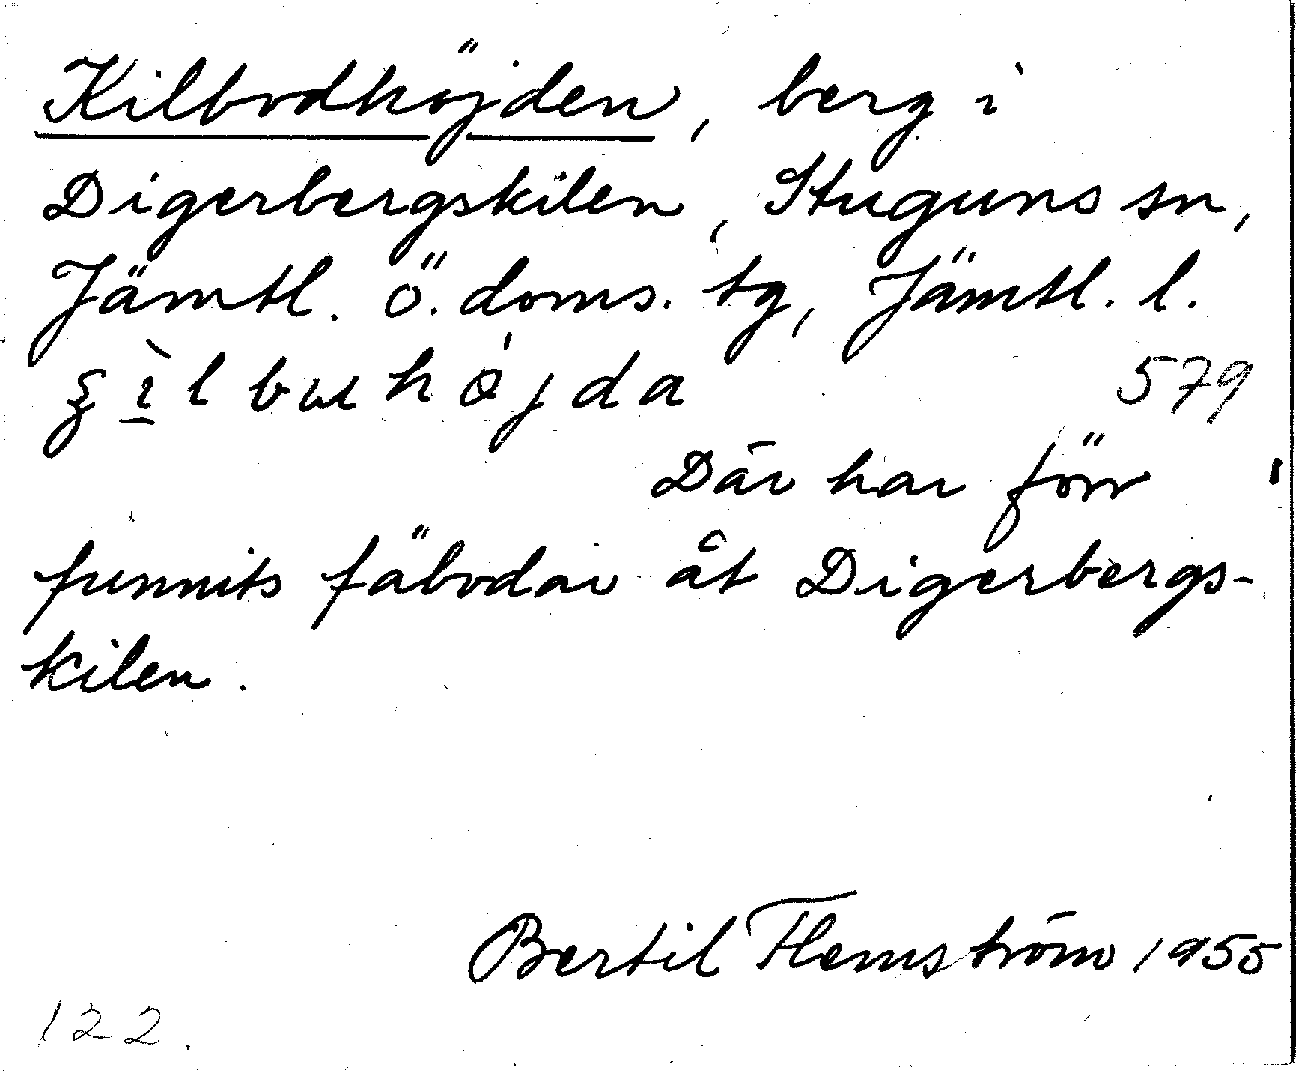 Kilbodhöjden, berg i
Digerbergskilen, Stuguns sn,
Jämtl. ö. doms. tg, Jämtl. l.
579
Där har förr
funnits fäbodar åt Digerbergs-
kilen.
Bertil Flemström 1955
122.